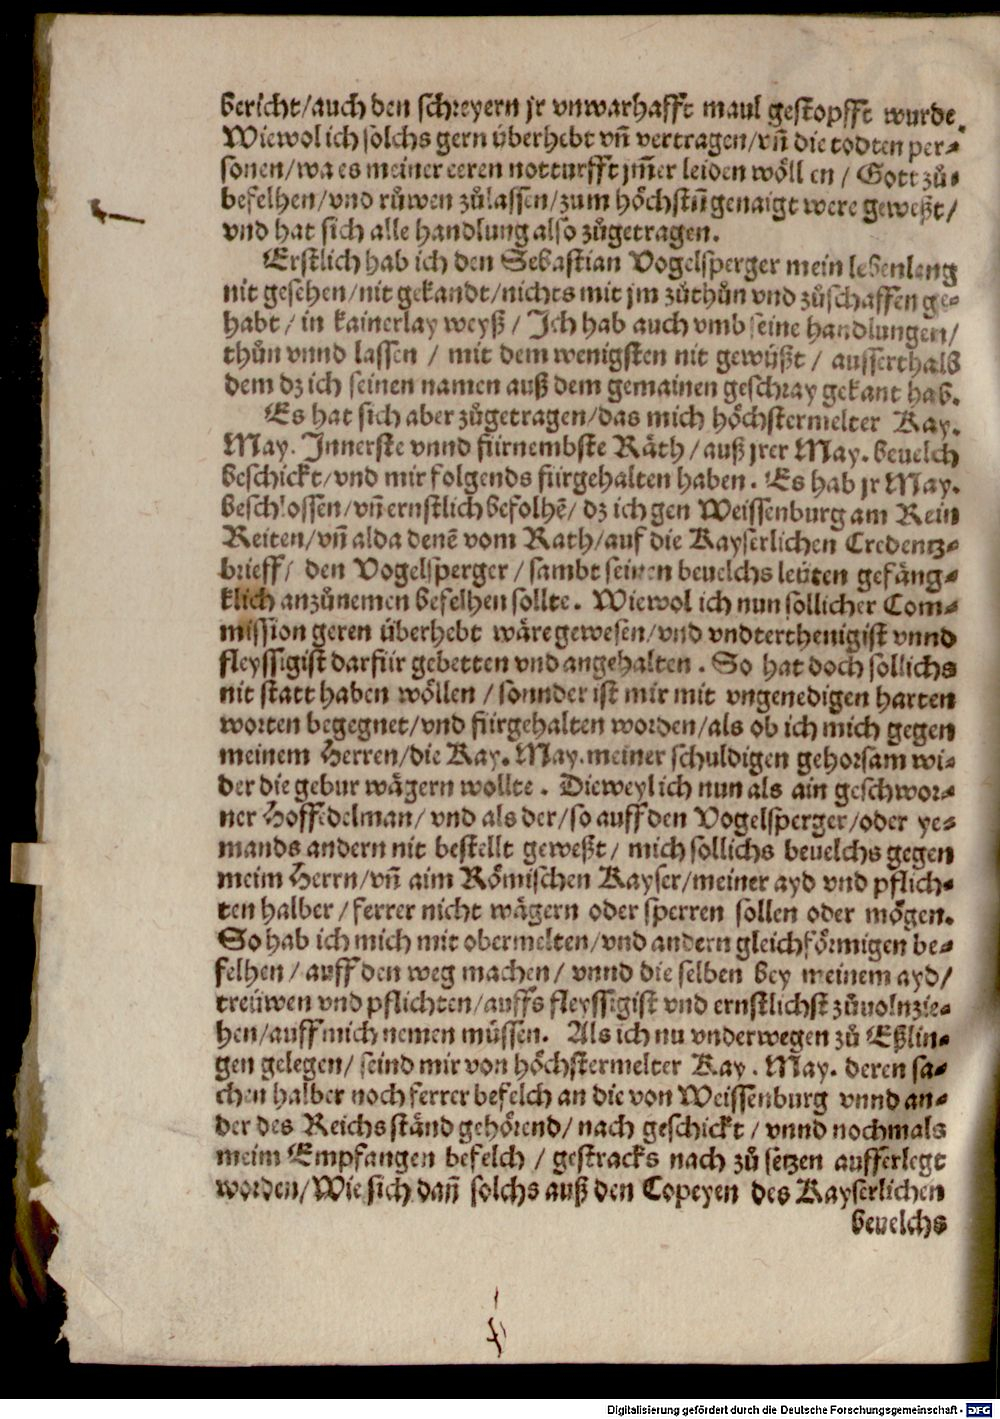 bericht/auch den schreyern jr vnwarhafft maul gestopfft wurde.
Wiewol ich solchs gern überhebt vñ vertragen/vñ die todten per-
sonen/wa es meiner eeren notturfft jm̃er leiden wöllen/ Gott zů-
befelhen/vnd růwen zůlassen/zum höchstñ genaigt were geweßt/
vnd hat sich alle handlung also zůgetragen.
Erstlich hab ich den Sebastian Vogelsperger mein lebenlang
nit gesehen/nit gekandt/nichts mit jm zůthůn vnd zůschaffen ge-
habt/ in kainerlay weyß/ Ich hab auch vmb seine handlungen/
thůn vnnd lassen / mit dem wenigsten nit gewüßt/ ausserthalb
dem dz ich seinen namen auß dem gemainen geschray gekant hab.
Es hat sich aber zůgetragen/das mich höchstermelter Kay.
May. Innerste vnnd fürnembste Räth/auß jrer May. beuelch
beschickt/vnd mir folgends fürgehalten haben. Es hab jr May.
beschlossen/vñ ernstlich befolhẽ/ dz ich gen Weissenburg am Rein
Reiten/vñ alda denẽ vom Rath/auf die Kayserlichen Credentz-
brieff/ den Vogelsperger/sambt seinen beuelchs leüten gefäng-
klich anzůnemen befelhen sollte. Wiewol ich nun sollicher Com-
mission geren überhebt wäre gewesen/vnd vndterthenigist vnnd
fleyssigist darfür gebetten vnd angehalten. So hat doch sollichs
nit statt haben wöllen/sonnder ist mir mit vngenedigen harten
worten begegnet/vnd fürgehalten worden/als ob ich mich gegen
meinem Herren/die Kay. May. meiner schuldigen gehorsam wi-
der die gebur wägern wollte. Dieweyl ich nun als ain geschwor-
ner Hoffedelman/ vnd als der/so auff den Vogelsperger/oder ye-
mands andern nit bestellt geweßt/ mich sollichs beuelchs gegen
meim Herrn/vñ aim Römischen Kayser/meiner ayd vnd pflich-
ten halber/ferrer nicht wägern oder sperren sollen oder mögen.
So hab ich mich mit obermelten/vnd andern gleichförmigen be-
felhen/ auff den weg machen/ vnnd die selben bey meinem ayd/
treüwen vnd pflichten/auffs fleyssigist vnd ernstlichst zůuolnzie-
hen/auff mich nemen müssen. Als ich nu vnderwegen zů Eßlin-
gen gelegen/ seind mir von höchstermelter Kay. May. deren sa-
chen halber noch ferrer befelch an die von Weissenburg vnnd an-
der des Reichs ständ gehörend/ nach geschickt/ vnnd nochmals
meim Empfangen befelch / gestracks nach zů setzen aufferlegt
worden/Wie sich dañ solchs auß den Copeyen des Kayserlichen
beuelchs
Digitalisierung gefördert durch die Deutsche Forschungsgemeinschaft - DFG